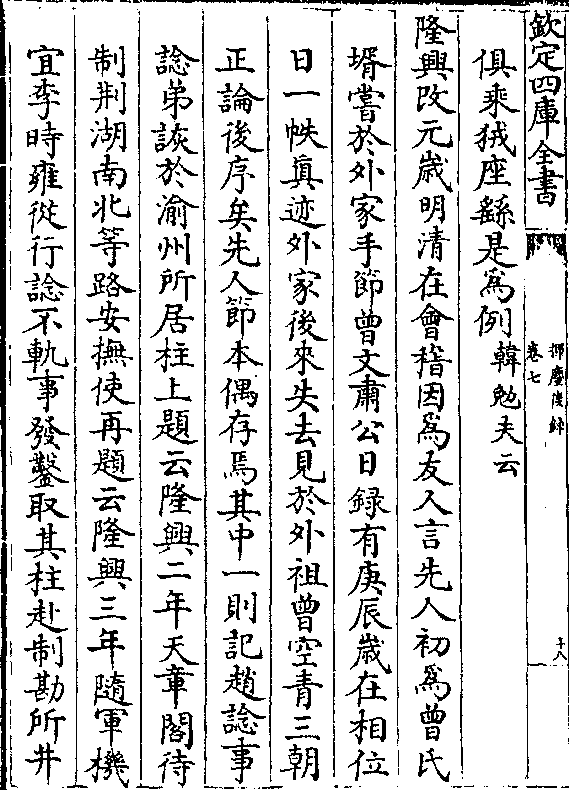 欽定四庫全書
揮麈後錄
卷七
十八
俱乗狨座繇是爲例韓勉夫云
隆興改元歳明清在會稽因爲友人言先人初爲曾氏
壻嘗於外家手節曾文肅公日録有庚辰歳在相位
日一帙真迹外家後來失去見於外祖曾空青三朝
正論後序矣先人節本偶存焉其中一則記趙諗事
諗弟詼於渝州所居柱上題云隆興二年天章閣待
制荆湖南北等路安撫使再題云隆興三年隨軍機
宜李時雍從行諗不軌事發鑿取其柱赴制勘所井